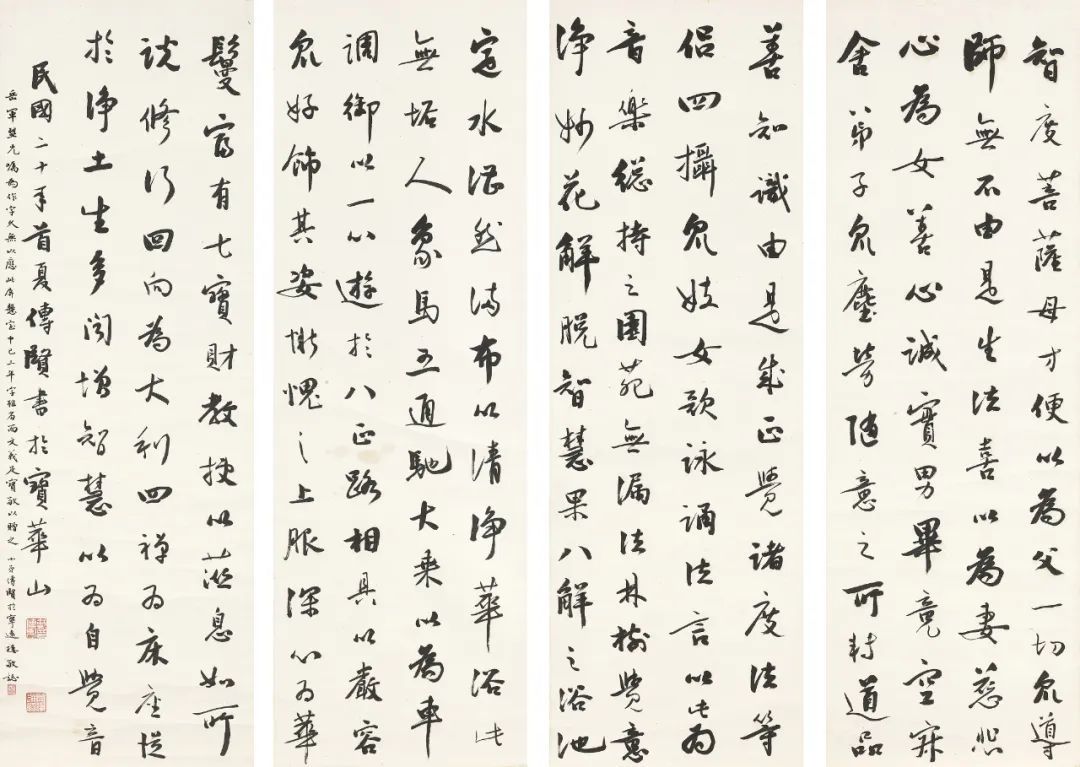 智度菩薩母方便以為父一切眾導
師無不由是生法喜以為妻慈悲
心為女善心誠實男畢竟空寂
舍弟子眾塵勞隨意之所轉道品
善知識由是成正覺諸度法等
侶四攝眾妓女歌詠誦法言以此為
音樂總持之園苑無漏法林樹覺意
淨妙花解脫智慧果八解之浴池
定水湛然滿布以清淨華浴此
無垢人象馬五通馳大乘以為車
調御以一心遊於八正路相具以嚴容
眾好飾其姿慚愧之上服深心為華
鬘富有七寶財教授以滋息如所
說修行回向為大利四禪為床座從
於淨土生多聞增智慧以為自覺音
民國二十年首夏傳賢書於寶華山
岳軍契兄囑為作字久無以應此屏懸室中已二年字雖劣而文義足寶敬以贈之 小弟傳賢於寧遠樓敬誌